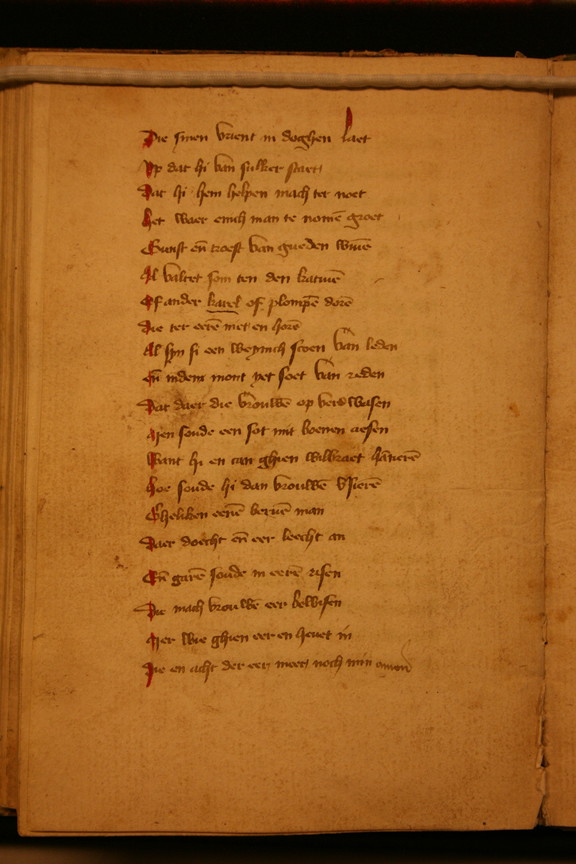 Die sinen vrient in doghen laet
Op dat hi van sulker staet
Dat hi hem helpen mach ter noet
Het waer enich man te nomē groet
Gunst en̄ troest van gueden wiuē
Al valtet som ten den katiuē
Of ander karel of plompē dorē
Die ter eerē niet en horē
Al syn si een weynich scoen van leden
En̄ inden mont yet soet van reden
Dat daer die vrouwē op verswasen
Men soude een sot mit boenen aesen
Want hi en can ghien wilbraet
Hoe soude hi dan vrouwē vsierē
Gheliken eerē man
Daer doecht en̄ eer leecht an
En̄ garē soude in eerē risen
Die mach vrouwē eer bewisen
Mer wie ghien eer en heuet in
Die en acht der eer meer noch min